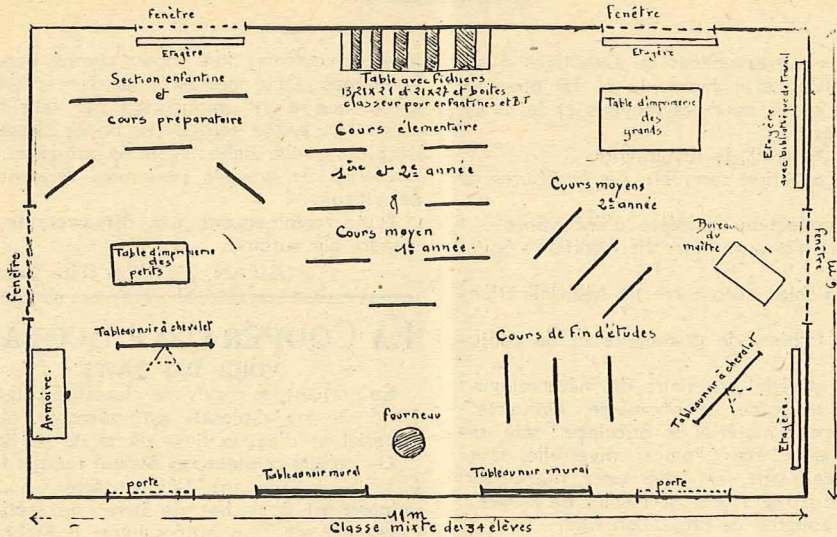 Fenêtre
Fenêtre
Etagère
Etagère
Section enfantine
et
Cours préparatoire
Table avec Fichiers
13,21 X 21 et 21 X 27 et boites
classeur pour enfantines et BT
Table d'imprimerie
des
grands
Etagère
avec bibliothèque de travail
Cours élementaire
1ère et 2e année
&
Cours moyen
1e année
Cours moyens
2e année
Bureau
du
maître
fenêtre
fenêtre
6 m
Table d'imprimerie
des
petits
Tableau noir à chevalet
Cours de Fin d'études
Tableau noir à chevalet
Armoire.
Fourneau
Etagère.
porte
Tableau noir mural
Tableau noir mural
porte
11 m
Classe mixte de 34 élèves
LA COOPERA